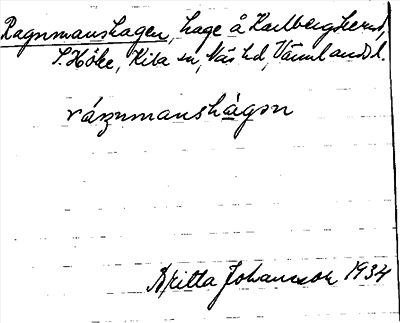 Ragnmanshagen, hage å Karlbergs hemd,
S. Höke, Kila sn, Näs hd, Värmland l.
ráŋnmanshàgən
Britta Johansson 1934